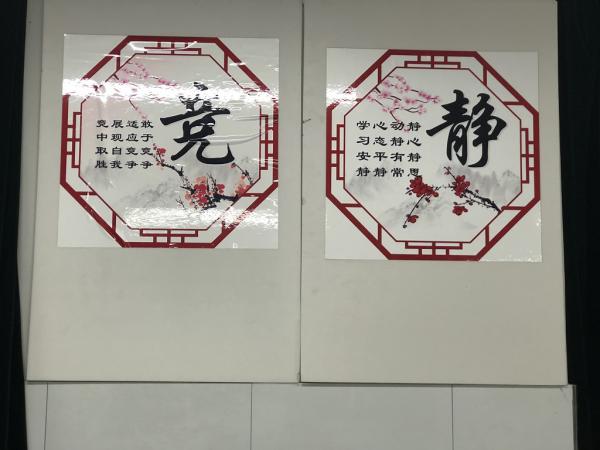 竞
敢于竞争
适应竞争
展现自我
竞中取胜
静
静心静思
动静有常
心态平静
学习安静